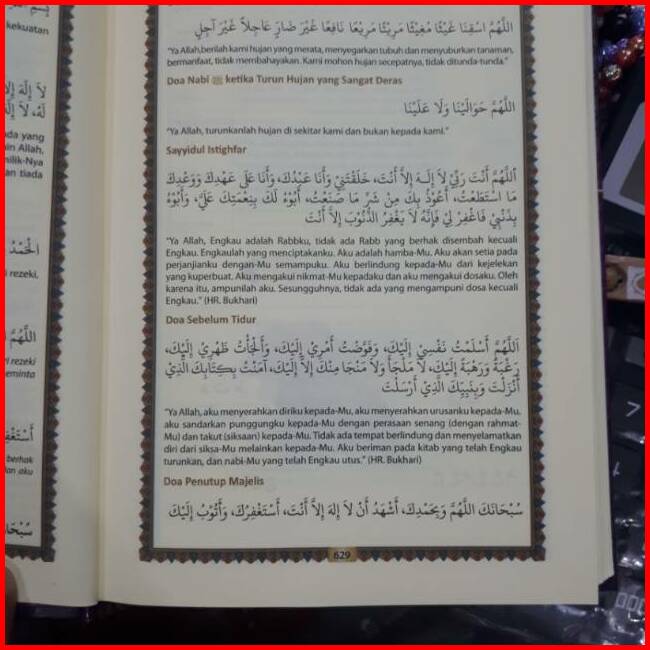 kekuatan
لَا إِلَهَ إِلَّا
لَهُ، لَا إِلَهَ
ada yang
ain Allah,
milik-Nya
an tiada
الْحَمْدُ
i rezeki,
اللَّهُمَّ
ri rezeki
eminta
berhak
dan aku
اللَّهُمَّ اسْقِنَا غَيْثًا مُغِيْثًا مَرِيْئًا مَرِيْعًا نَافِعًا غَيْرَ ضَارٍّ عَاجِلاً غَيْرَ آجِلٍ
"Ya Allah,berilah kami hujan yang merata, menyegarkan tubuh dan menyuburkan tanaman,
bermanfaat, tidak membahayakan. Kami mohon hujan secepatnya, tidak ditunda-tunda."
Doa Nabi ﷺ ketika Turun Hujan yang Sangat Deras
اللَّهُمَّ حَوَالَيْنَا وَلَا عَلَيْنَا
"Ya Allah, turunkanlah hujan di sekitar kami dan bukan kepada kami."
Sayyidul Istighfar
اَللَّهُمَّ أَنْتَ رَبِّيْ لاَ إِلَـهَ إِلاَّ أَنْتَ، خَلَقْتَنِيْ وَأَنَا عَبْدُكَ، وَأَنَا عَلَى عَهْدِكَ وَوَعْدِكَ
مَا اسْتَطَعْتُ، أَعُوْذُ بِكَ مِنْ شَرِّ مَا صَنَعْتُ، أَبُوْءُ لَكَ بِنِعْمَتِكَ عَلَيَّ، وَأَبُوْءُ
بِذَنْبِيْ فَاغْفِرْ لِيْ فَإِنَّهُ لاَ يَغْفِرُ الذُّنُوْبَ إِلاَّ أَنْتَ
"Ya Allah, Engkau adalah Rabbku, tidak ada Rabb yang berhak disembah kecuali
Engkau. Engkaulah yang menciptakanku. Aku adalah hamba-Mu. Aku akan setia pada
perjanjianku dengan-Mu semampuku. Aku berlindung kepada-Mu dari kejelekan
yang kuperbuat. Aku mengakui nikmat-Mu kepadaku dan aku mengakui dosaku. Oleh
karena itu, ampunilah aku. Sesungguhnya, tidak ada yang mengampuni dosa kecuali
Engkau." (HR. Bukhari)
Doa Sebelum Tidur
اَللَّهُمَّ أَسْلَمْتُ نَفْسِيْ إِلَيْكَ، وَفَوَّضْتُ أَمْرِيْ إِلَيْكَ، وَأَلْجَأْتُ ظَهْرِيْ إِلَيْكَ،
رَغْبَةً وَرَهْبَةً إِلَيْكَ، لَا مَلْجَأَ وَلَا مَنْجَا مِنْكَ إِلاَّ إِلَيْكَ، آمَنْتُ بِكِتَابِكَ الَّذِيْ
أَنْزَلْتَ وَبِنَبِيِّكَ الَّذِيْ أَرْسَلْتَ
"Ya Allah, aku menyerahkan diriku kepada-Mu, aku menyerahkan urusanku kepada-Mu,
aku sandarkan punggungku kepada-Mu dengan perasaan senang (dengan rahmat-
Mu) dan takut (siksaan) kepada-Mu. Tidak ada tempat berlindung dan menyelamatkan
diri dari siksa-Mu melainkan kepada-Mu. Aku beriman pada kitab yang telah Engkau
turunkan, dan nabi-Mu yang telah Engkau utus." (HR. Bukhari)
Doa Penutup Majelis
سُبْحَانَكَ اللَّهُمَّ وَبِحَمْدِكَ، أَشْهَدُ أَنْ لاَ إِلهَ إِلاَّ أَنْتَ، أَسْتَغْفِرُكَ، وَأَتُوْبُ إِلَيْكَ
629